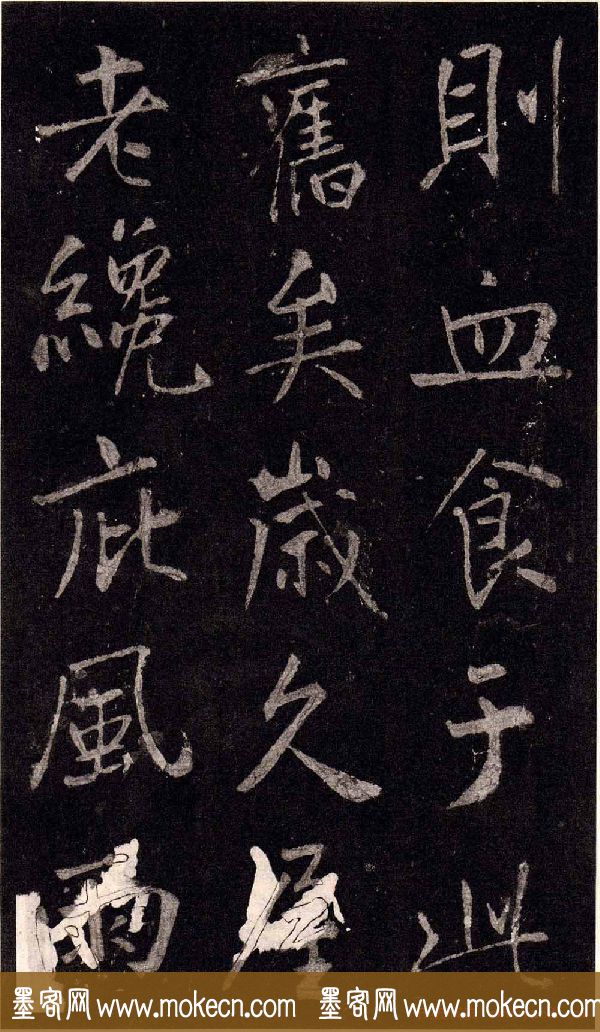 則血食于此
舊矣歲久屋
老纔庇風雨
墨客网 www.mokecn.com 墨客网 www.mokecn.com